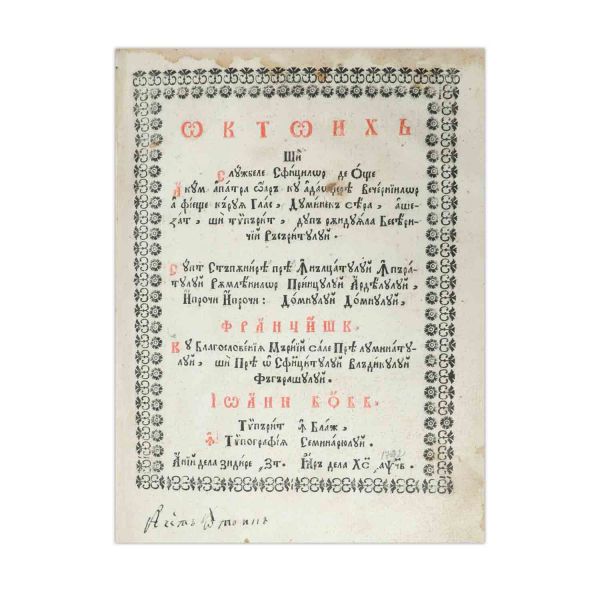 Ѡ К Т Ѡ И Х Ь
Шй
Слꙋжбеле Сфи́нцилѡр де О́ще
А́кум апатра ѻ́аръ кꙋ а҆да́ѡѵ҆ире Вече́рнїилѡр
Дꙋми́некъ Сѣ́ра,
ши тѵ҆пъри́т, дꙋпъ рѫндꙋѧла Бесе́ри-
чїй Ръсъри́тꙋлꙋй.
Сꙋпт Стъпѫни́рѣ прѣ Ꙟнълца́тꙋлꙋй Ꙟпъра́-
тꙋлꙋй Рѫмле́нилѡр При́нцꙋлꙋй А҆рдѣ́лꙋлꙋй,
Ипрочи Ипрочи: До́мнꙋлꙋй До́мнꙋлꙋй,
Ф Р А Н Ч И́ Ш К.
Кꙋ Благослове́нїѧ Мъри́їй са́ле Прѣ лꙋмина́тꙋ-
лꙋй, ши Прѣ Ѡ҆ Сфинци́тꙋлꙋй Влъ́дикꙋлꙋй
Фъгъра́шꙋлꙋй.
І Ѡ А Н Н Б Ѻ Б Б,
Тѵ҆пъри́т ꙟ҆ Бла́ж,
ꙟ҆ Тѵ҆погра́фїѧ Семина́рюлꙋй.
А҆́нїй дела зиди́ре ҂зт. Їа҆ръ дела Хс҃ ҂аѱчв.
1792